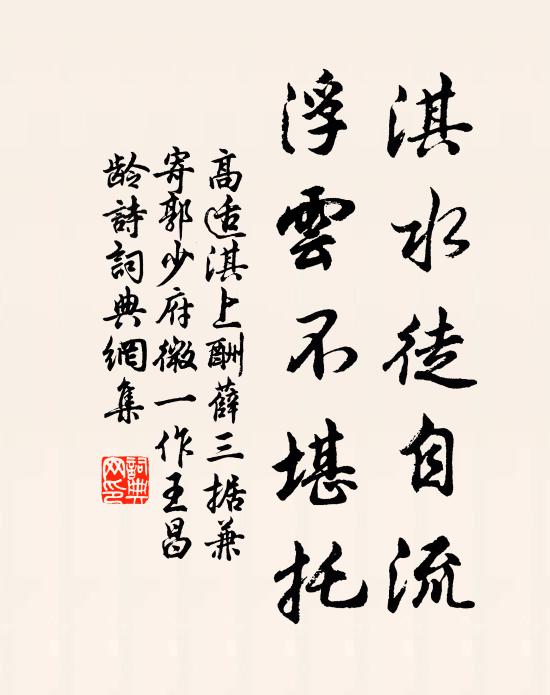 淇水徒自流
浮雲不堪托
高适淇上酬薛三据兼
寄郭少府微一作王昌
龄詩詞典網集
詞典
网印